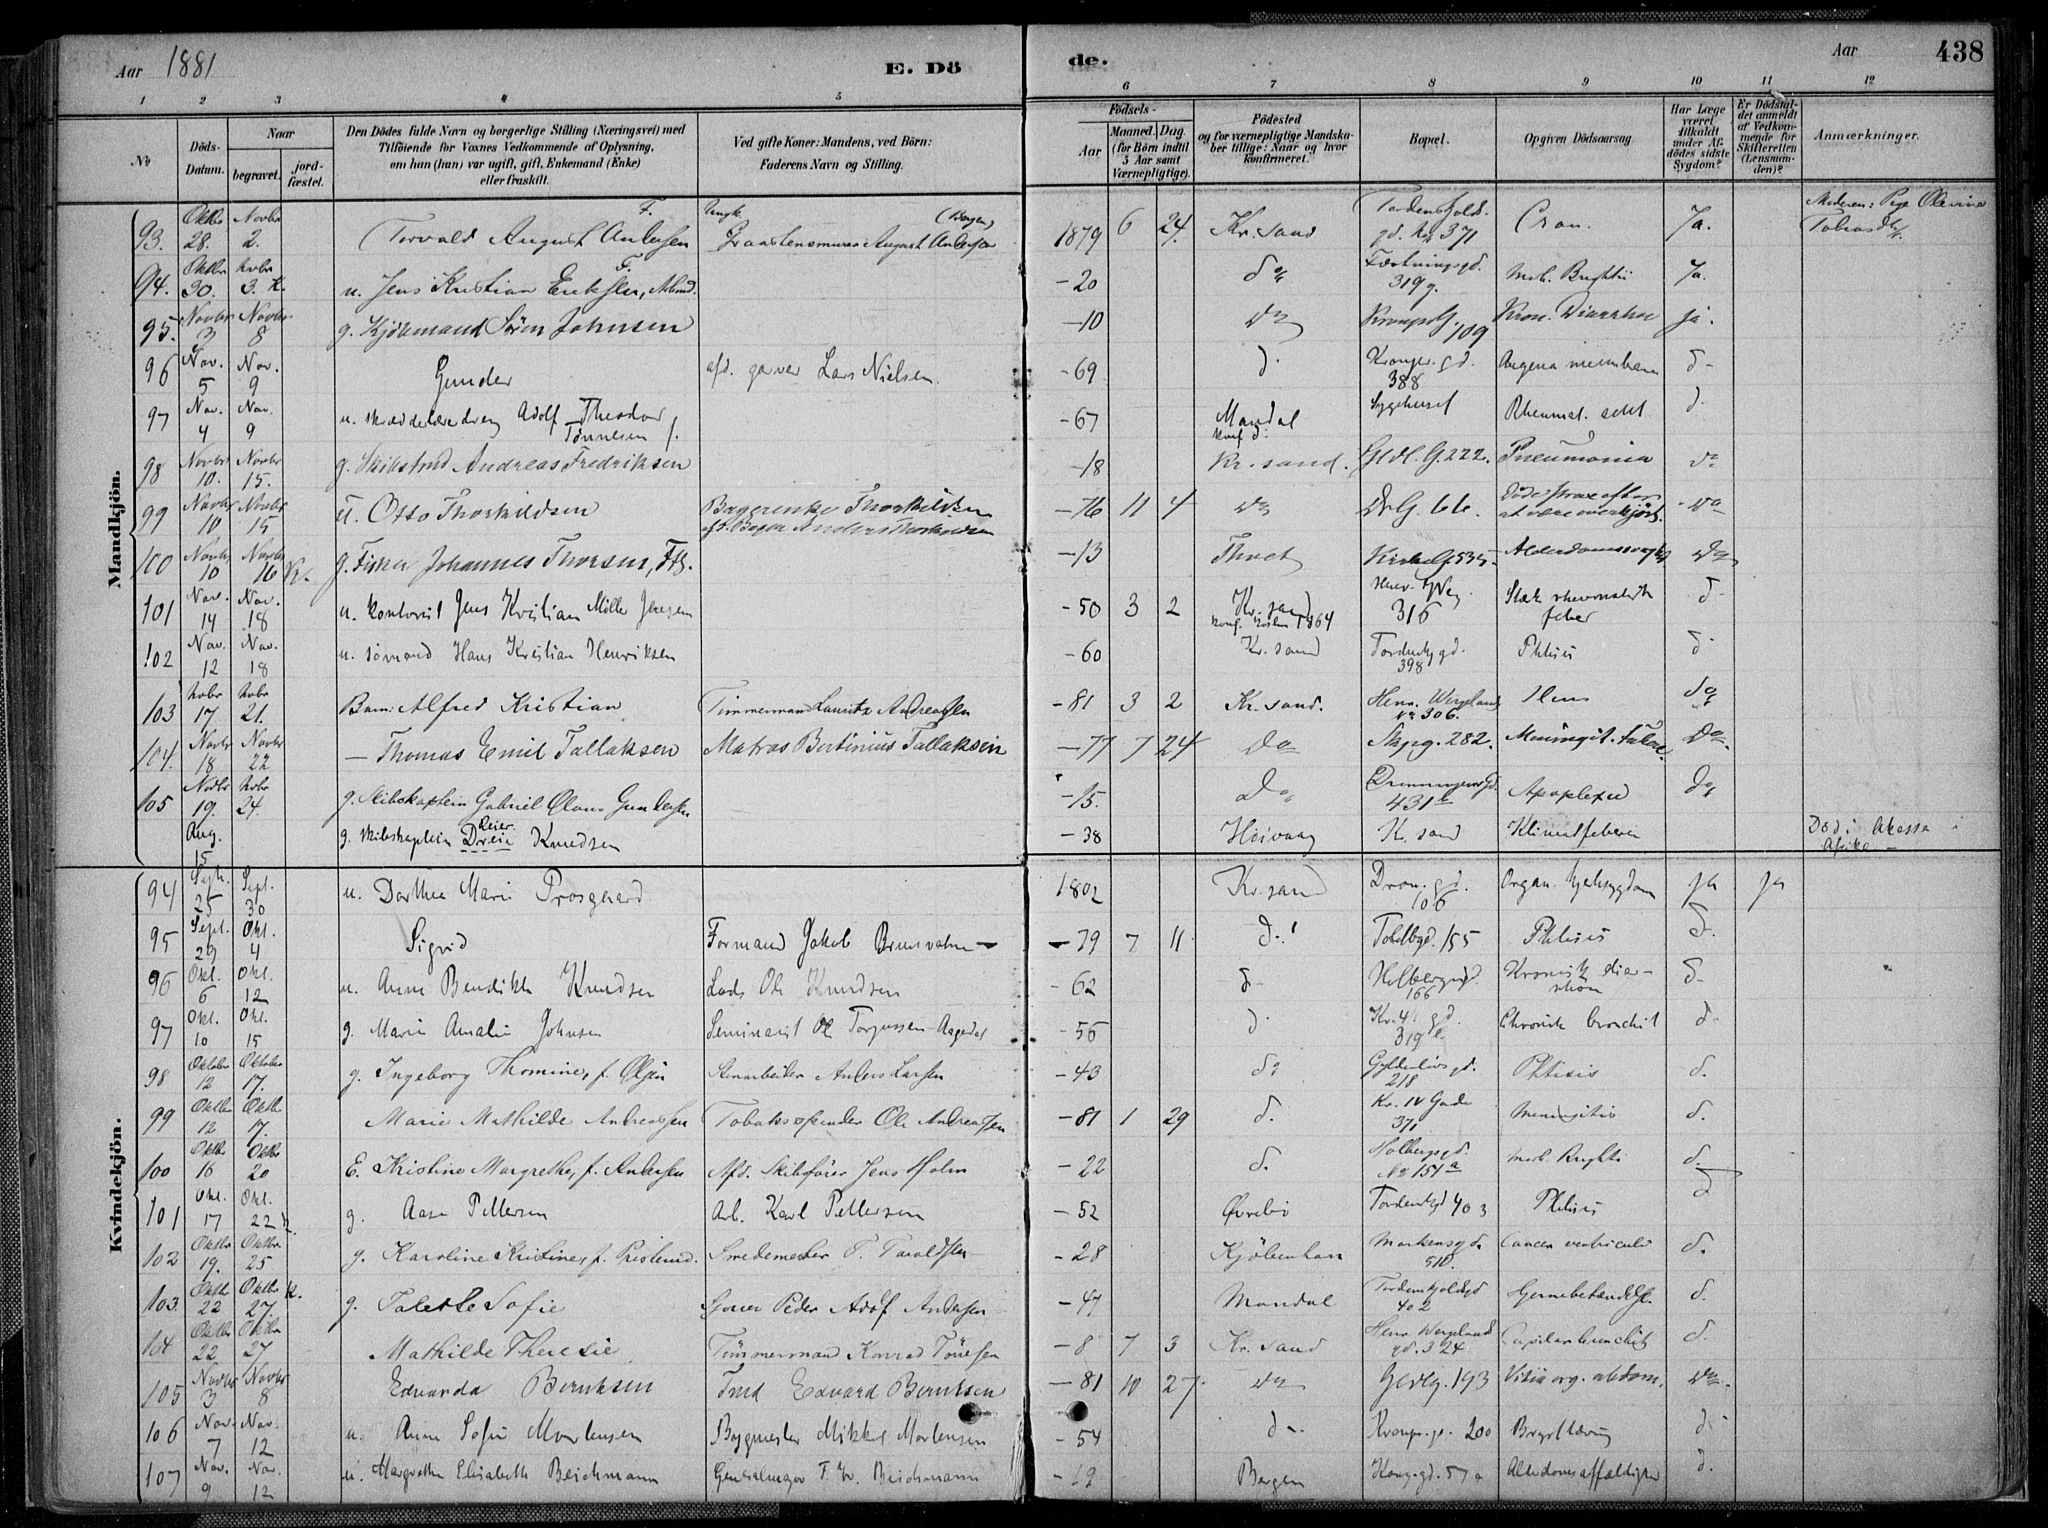 Aar 1881
E. Dö
de.
Aar
438
1 2 3 4 5 6 7 8 9 10 11 12
No
Döds-Datum.
Naar
begravet.
jord-fæstet.
Den Dödes fulde Navn og borgerlige Stilling (Næringsvei) med
Tilföiende for Voxnes Vedkommende af Oplysning,
om han (hun) var ugift, gift, Enkemand (Enke)
eller fraskilt.
Ved gifte Koner: Mandens, ved Börn:
Faderens Navn og Stilling.
Födsels-
Aar
Maaned. Dag.
(for Börn indtil
5 Aar samt
Værnepligtige).
Födested
og for værnepligtige Mandska-
ber tillige: Naar og hvor
konfirmeret.
Bopæl.
Opgiven Dödsaarsag.
Har Læge
været
tilkaldt
under Af-
dödes sidste
Sygdom?
Er Dödsfal-
det anmeldt
af Vedkom-
mende for
Skifteretten
(Lensman-
den)?
Anmærkninger.
Mandkjön.
93. Oktbr 28. Novbr 2. Torvald August Andersen August Andersen (Bergen) 1879 6 24 Kr. sand Tordenskjolds gd. 371 Cron. Ja. Moderen: Pige Olevine Tobiasd.
94. Oktbr 30. Nvbr 3. K. u. Jens Kristian Eriksen, F. -20 do Fæstningsgd. 319 g. Morb. Brightii Ja.
95. Novbr 3 Novbr 8 g. Kjöbmand Sören Johnsen -10 do 109 Kron. Diarrhoe ja.
96 Nov. 5 Nov. 9 Gunder afd. garver Lars Nielsen. -69 d. gd. 388 Angina d-
97 Nov. 4 Nov. 9 u. Adolf Theodor Tönnesen f. -67 Mandal konf d: Sygehuset Rheumat. d.
98 Novbr 10. Novbr 15. g. Skibstmd Andreas Fredriksen -18 Kr. sand. Gldl. G. 222. Pneumonia do
99 Novbr 10 Novbr 15 u. Otto Thorkildsen Bagerenke Thorkildsen -76 11 4 do Dr. G. 66. Döde strax efter at være overkjört. do
100 Novbr 10 Novbr 16 K. g. Fisker Johannes Thorsen, Ftg. -13 Thvet Kirkeg. 535 Alderdomssvaghed do
101 Nov. 14 Nov. 18 u. kontorist Jens Kristian Möller Jensen -50 3 2 Kr. sand 1864 Henr. W veg 316 Stærk rheumatisk feber d-
102 Nov. 12 Nov. 18 u. sömand Hans Kristian Henriksen -60 Kr. sand Tordenskj gd. 398 Phtisis d-
103 Nvbr 17 Nvbr 21. Barn: Alfred Kristian Timmermand Lauritz Andreassen -81 3 2 Kr. sand. Henr. Wergelands No 306. Ilens do
104. Novbr 18 Novbr 22 — Thomas Emil Tallaksen Matros Bertinius Tallaksen -77 7 24 do Skpg. 282. Meningit. tuberc. Do.
105 Novbr 19. Nvbr 24. g. Skibskaptein Gabriel Olaus Gundersen -15. Do Dronningensgd. 431 Apoplexie do
Aug. 15 g. skibskaptein Reier Knudsen -38 Höivaag K. sand Klimatfeberen Död i Akassa i Afrika —
Kvindekjön.
94 Sept. 25 Sept. 30 u. Dorthea Marie Prosgaard 1802 Kr. sand Dron. gd. 106 Organ. hjertesygdom ja ja
95 Sept. 29 Okt. 4 Sigrid Formand Jakob -79 7 11 d. Toldbgd. 155 Phtisis d.
96 Okt. 6 Okt. 12 u. Anne Bendikte Knudsen Lods Ole Knudsen -62 d- Holbergsgd. 166 Kronisk diarrhöe d-
97 Okt. 10 Okt. 15 g. Marie Amalie Johnsen Seminarist Ole Torgussen-Aagedal -55 d. Kr. 4 gd. 319 Chronisk bronchit d-
98 Oktober 12 Oktober 17. g. Ingeborg Thomine, f. Olsen Stenarbeider Anders Larsen -43 do Gyldenlövsgd. 218 Phtisis d.
99 Oktbr 12 Oktbr 17. Marie Mathilde Andreassen Tobaksspinder Ole Andreassen -81 1 29 d. Kr. IV Gade 371 Meningitis d.
100 Oktbr 16 Oktbr 20 E. Kristine Margrethe, f. Andersen Afd. Skibsförer Jens Holm -22 d. Holbergsgd. No 151a Morb. Brightii d.
101 Okt. 17 Okt. 22 K. g. Aase Pettersen Arb. Karl Pettersen -52 Övrebö Tordenskgd 403 Phtisis d
102 Oktbr 19. Oktbr 25 g. Karoline Kristine, f. Smedemester T. Taraldsen -28 Kjöbenhavn Markensgd. 510. Cancer ventriculi d.
103. Oktbr 22 Oktbr 27 K. g. Talette Sofie Peder Adolf Andersen -47 Mandal Tordenskjoldsgd 402 d.
104 Oktbr 22 Oktbr 27 Mathilde Theresie Timmermand Konrad Tönnesen -8 7 3 Kr. sand Henr. Wergelands gd. 324 Capillærbronchit d.
105 Novbr 3 Novbr 8 Edvarda Berntsen Tmd Edvard Berntsen -81 10 27 do Gldlg. 193 Vitia org. abdom. do
106 Nov. 7 Nov. 12 u. Anne Sofie Mortensen Bygmester Mikkel Mortensen -54 d- Kronpr. gd. 200 Brysttæring d-
107 Nov. 9 Nov. 12 u. Margrethe Elisabeth Beichmann Generalmajor Beichmann -12 Bergen Kongsgd. 57 a d.